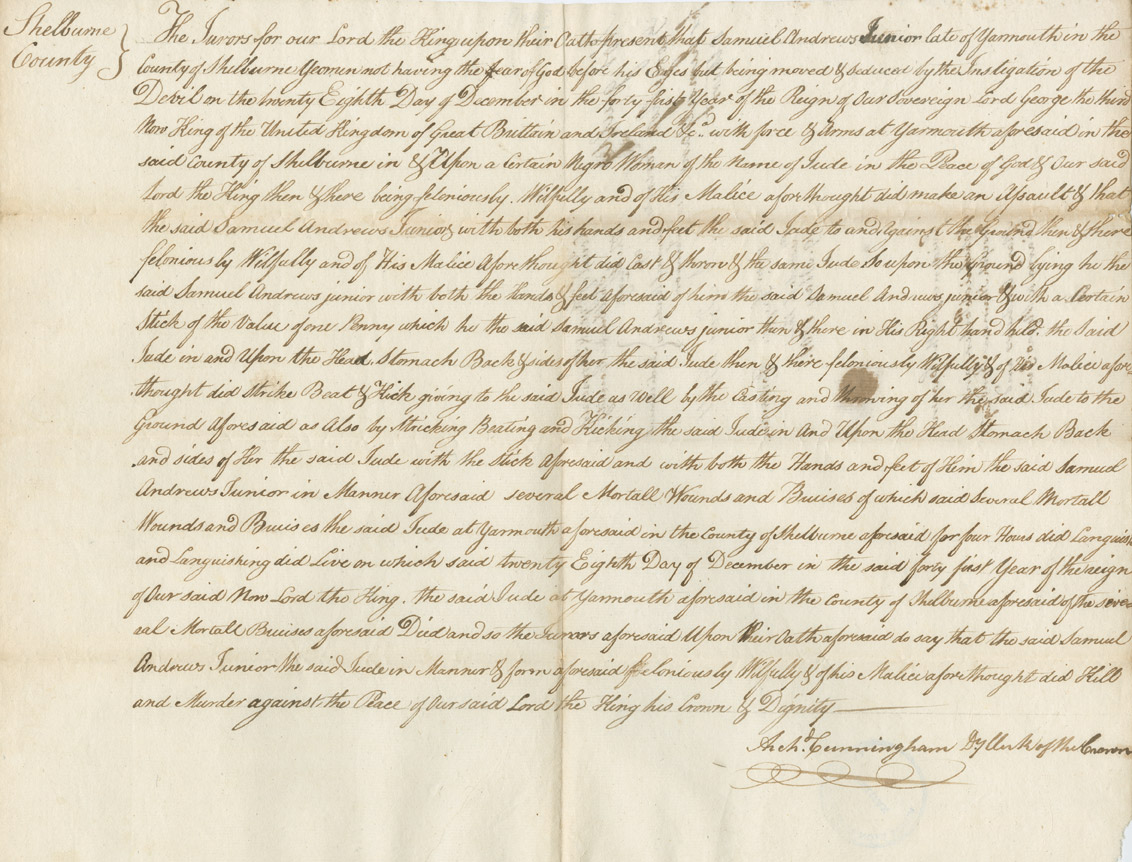 Shelburne
County }
The Jurors for our Lord the King upon their Oath present that Samuel Andrews Junior late of Yarmouth in the
County of Shelburne Yeomen not having the fear of God before his Eyes but being moved & seduced by the Instigation of the
Devil on the twenty Eighth Day of December in the forty first Year of the Reign of Our Sovereign Lord George the third
Now King of the United Kingdom of Great Brittain and Ireland &c. with force & Arms at Yarmouth aforesaid in the
said County of Shelburne in & Upon a Certain Negro Woman of the Name of Jude in the Peace of God & Our said
Lord the King then & there being feloniously. Wilfully and of His Malice aforthought did make an Assault & that
the said Samuel Andrews Junior with both his hands and feet the said Jude to and against the Ground then & there
felonious by Wilfully and of His Malice Afore thought did Cast & thron & the same Jude so upon the Ground lying he the
said Samuel Andrews junior with both the Hands & feet aforesaid of him the said Samuel Andrews junior & with a Certain
Stick of the Value of one Penny which he the said Samuel Andrews junior then & there in His Right hand held. the Said
Jude in and Upon the Head Stomach Back & sides of her the said Jude then & there feloniously Wilfully & of His Malice afore
thought did Strike Beat & Kick giving to the said Jude as Well by the Casting and throwing of her the said Jude to the
Ground Aforesaid as Also by Stricking Beating and Kicking the said Jude in And Upon the Head Stomach Back
and sides of Her the said Jude with the Stick Aforesaid and with both the Hands and feet of Him the said Samuel
Andrews Junior in Manner Aforesaid several Mortall Wounds and Bruises of which said Several Mortall
Wounds and Bruises the said Jude at Yarmouth aforesaid in the County of Shelburne aforesaid for four Hours did Languish
and Languishing did Live on which said twenty Eighth Day of December in the said forty first Year of the reign
of Our said Now Lord the King. the said Jude at Yarmouth aforesaid in the County of Shelburne aforesaid of the seve-
aal Mortall Bruises aforesaid Died and so the Jurrors aforesaid Upon their Oath aforesaid do say that the said Samuel
Andrews Junior the said Jude in Manner & form aforesaid feloniously Wilfully & of his Malice afore thought did Kill
and Murder against the Peace of Our said Lord the King his Crown & Dignity
Archd. Cunningham Dy Clerk of the Crown